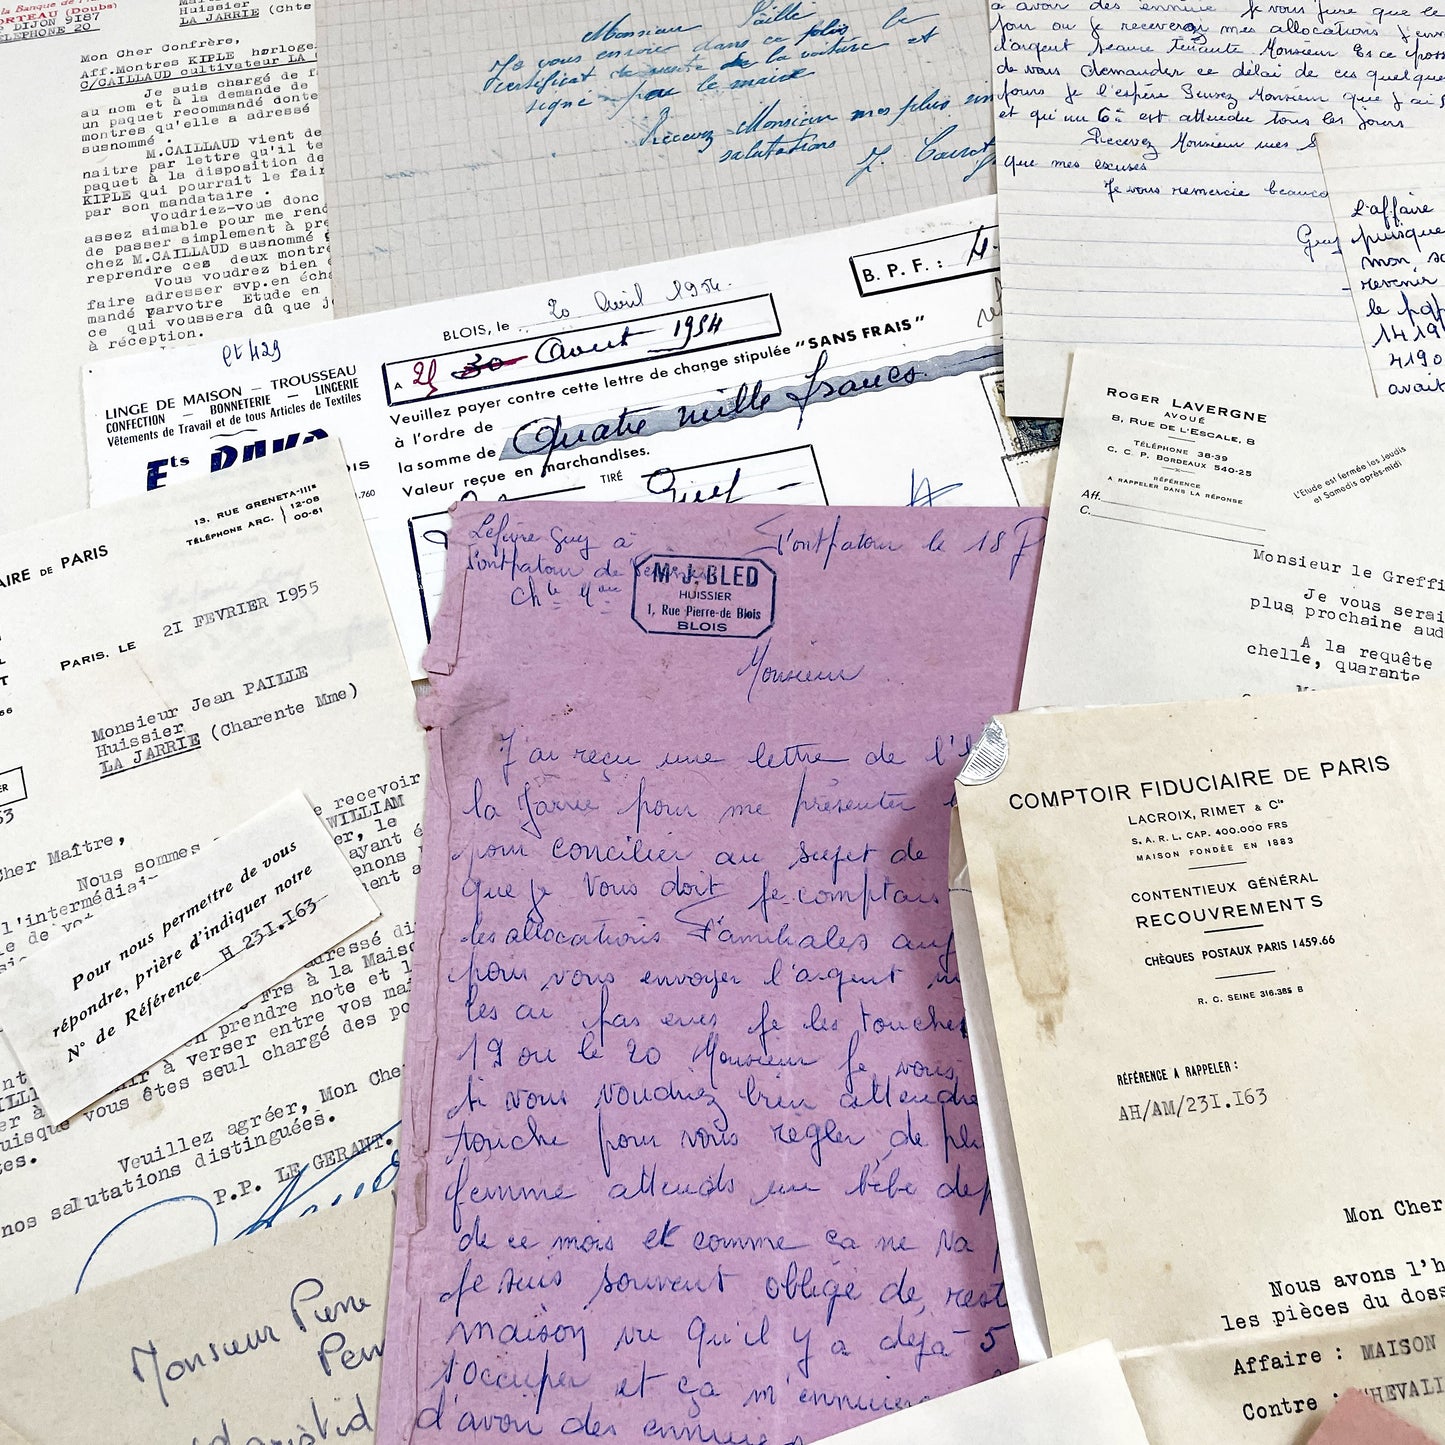 la Banque de
PORTEAU (Doubs)
DIJON 9187
TELEPHONE 20
Huissier
LA JARRIE (Chte
Mon Cher Confrère,
Aff.Montres KIPLE horloge
C/CAILLAUD cultivateur LA
Je suis chargé de
au nom et à la demande de
un paquet recommandé
montres qu'elle a adressé
susnommé .
M.CAILLAUD vient de
naitre par lettre qu'il
paquet à la disposition de
KIPLE qui pourrait le
par son mandataire .
Voudriez-vous donc
assez aimable pour me
de passer simplement à
chez M.CAILLAUD susnommé
reprendre ces deux
Vous voudrez bien
faire adresser svp.en
mandé parvotre Etude en
ce qui voussera dû que
à réception.
Monsieur Paille
Je vous envoie dans ce plis le
certificat de vente de la voiture et
signé par le maire
Recevez Monsieur mes plus
salutations
a avoir des ennuie Je vous jure que le
jour ou je receverai mes allocations
l'argent seance tenante Monsieur Es ce
de vous demander ce délai de ces quelque
jours je l'espère Pensez Monsieur que j'ai
et qu'un 6e est attendu tous les jours
Recevez Monsieur mes
que mes excuses
Je vous remercie
Guy
L'affaire
puisque
mon
revenir
le
1419
4190
avait
BLOIS, le 20 Avril 1954.
B. P. F. : 4
A 25 30 Aout 1954
Veuillez payer contre cette lettre de change stipulée "SANS FRAIS"
à l'ordre de
la somme de Quatre mille francs.
Valeur reçue en marchandises.
TIRÉ
Guy
LINGE DE MAISON — TROUSSEAU
CONFECTION — BONNETERIE — LINGERIE
Vêtements de Travail et de tous Articles de Textiles
Ets DAVA
OIS
.760
ROGER LAVERGNE
AVOUÉ
8, RUE DE L'ESCALE, 8
TÉLÉPHONE 38-39
C. C. P. BORDEAUX 540-25
RÉFÉRENCE
A RAPPELER DANS LA RÉPONSE
Aff.
C.
L'Etude est fermée les Jeudis
et Samedis après-midi
Monsieur le Greffi
Je vous serai
plus prochaine aud
A la requête
chelle, quarante
13, RUE GRENETA-IIIe
TÉLÉPHONE ARC. 12-08
00-61
AIRE DE PARIS
PARIS, LE 21 FEVRIER 1955
Monsieur Jean PAILLE
Huissier
LA JARRIE (Charente Mme)
Cher Maître,
Nous sommes
recevoir
WILLIAM
l'intermédiai
Pour nous permettre de vous
répondre, prière d'indiquer notre
N° de Référence H 231.163
Frs à la
en prendre note et
à verser entre vos
puisque vous êtes seul chargé des
Veuillez agréer, Mon Che
nos salutations distinguées.
P.P. LE GERANT.
Monsieur Pierre
Lefèvre Guy à
Ch te Mme
le 18
Me J. BLED
HUISSIER
1, Rue Pierre-de Blois
BLOIS
Monsieur
J'ai reçu une lettre de
la Jarrie pour me présenter
pour concilier au sujet de
que je vous doit je comptais
les allocations Familiales
pour vous envoyer l'argent
les ai pas eues je les touches
19 ou le 20 Monsieur je vous
si vous voudriez bien attendre
touche pour vous regler de
femme attends un bébe
de ce mois et comme ça ne va
Je suis souvent obligé de
maison vu qu'il y a deja 5
s'occuper et ça
d'avoir des
COMPTOIR FIDUCIAIRE DE PARIS
LACROIX, RIMET & Cie
S. A. R. L. CAP. 400.000 FRS
MAISON FONDÉE EN 1883
CONTENTIEUX GÉNÉRAL
RECOUVREMENTS
CHÈQUES POSTAUX PARIS 1459.66
R. C. SEINE 316.385 B
RÉFÉRENCE A RAPPELER :
AH/AM/231.163
Mon Cher
Nous avons l'h
les pièces du doss
Affaire : MAISON
Contre : CHEVALI